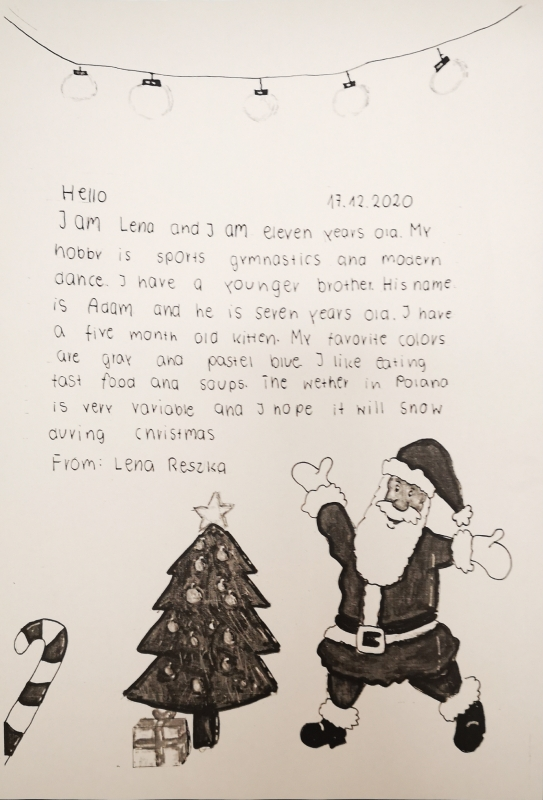 Hello 17.12.2020
I am Lena and I am eleven years old. My
hobby is sports gymnastics and modern
dance. I have a younger brother. His name
is Adam and he is seven years old. I have
a five month old kitten. My favorite colors
are gray and pastel blue. I like eating
fast food and soups. The wether in Poland
is very variable and I hope it will snow
during christmas
From: Lena Reszka